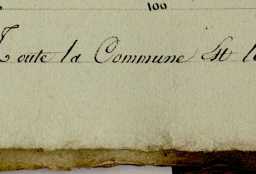 100
Toute la Commune Est